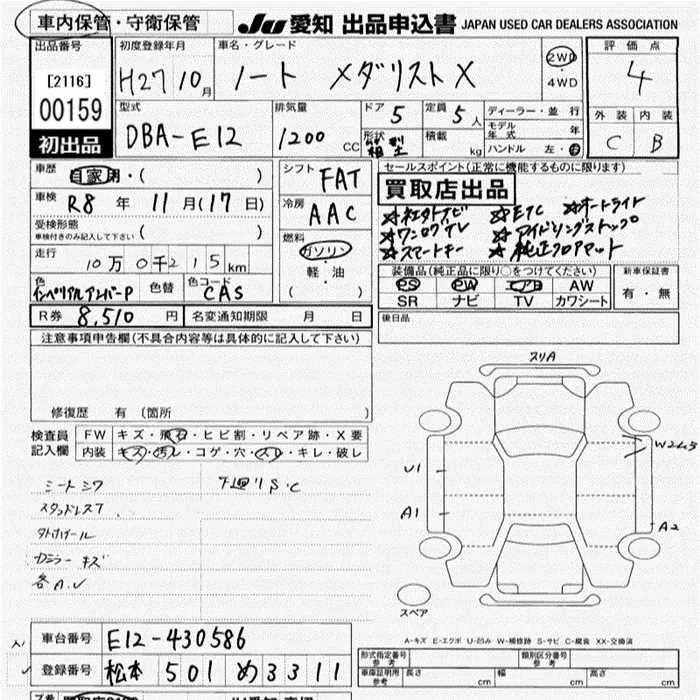 車内保管・守衛保管
JU 愛知 出品申込書 JAPAN USED CAR DEALERS ASSOCIATION
出品番号
[2116]
00159
初出品
初度登録年月
H27 10月
車名・グレード
ノート メダリスト X
2WD
4WD
評価点
4
外装 内装
C B
型式
DBA-E12
排気量
1200 CC
ドア 5
定員 5人
形状 箱型
積載 kg
ディーラー・並行
モデル年式 年
ハンドル 左・右
車歴
自家用・( )
車検 R8年 11月(17日)
受検形態
車検付きのみ記入して下さい( )
走行
10万0千215km
色 色替 色コード
インペリアルアンバーP CAS
シフト FAT
冷房 AAC
燃料
ガソリン
軽・油
( )
セールスポイント(正常に機能するものに限ります)
買取店出品
☆ワンセグTV ☆アイドリングストップ
☆ETC ☆オートライト
☆スマートキー ☆純正フロアマット
装備品(純正品に限り○をつけてください)
PS PW エアB AW
SR ナビ TV カワシート
新車保証書
有・無
R券 8,510円
名変通知期限 月 日
後日品
注意事項申告欄(不具合内容等は具体的に記入して下さい)
修復歴 有 (箇所 )
検査員記入欄
FW キズ・飛石・ヒビ割・リペア跡・X要
内装 キズ・汚レ・コゲ・穴・スレ・キレ・破レ
シートシワ
下廻りS・C
スタッドレス7
タトホイール
カミラー キズ
各A.U
スリA
U1
A1
A2
スペア
A-キズ E-エクボ U-凹み W-補修跡 S-サビ C-腐食 XX-交換済
車台番号 E12-430586
登録番号 松本 501 め 3311
形式指定番号 参考
類別区分番号 参考
車庫証明用 参考
長さ cm
幅 cm
高さ cm